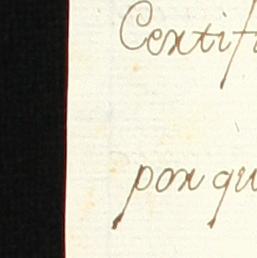 Certif
por qu